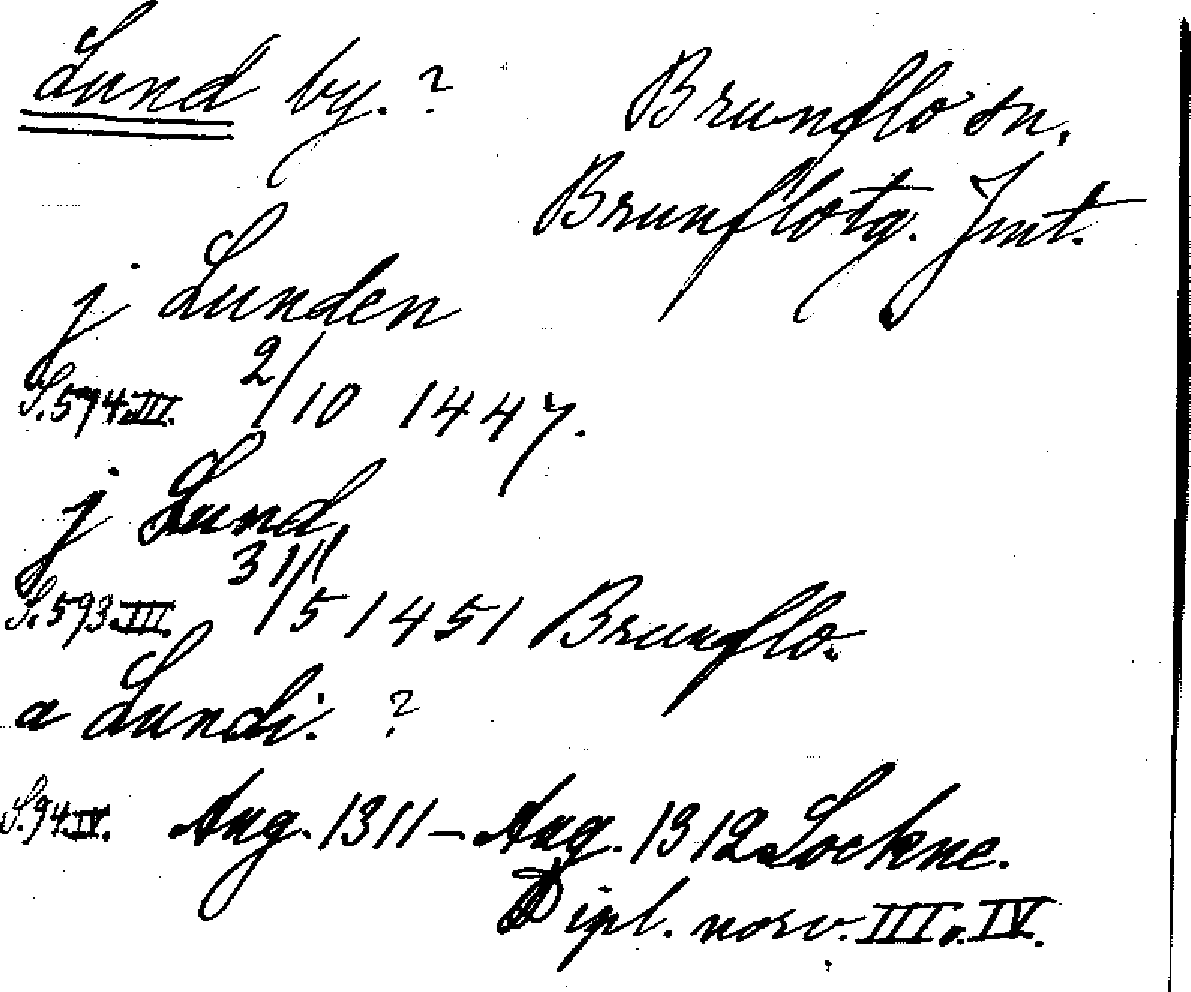 Lund by. ?
Brunflo sn.
Brunflotg. Jmt.
j Lunden
S. 594. III. 2/10 1447.
j Lund
S. 593. III. 31/5 1451 Brunflo.
a Lundi. ?
S. 94. IV. Aug. 1311 – Aug. 1312 Lockne.
Dipl. norv. III. o. IV.